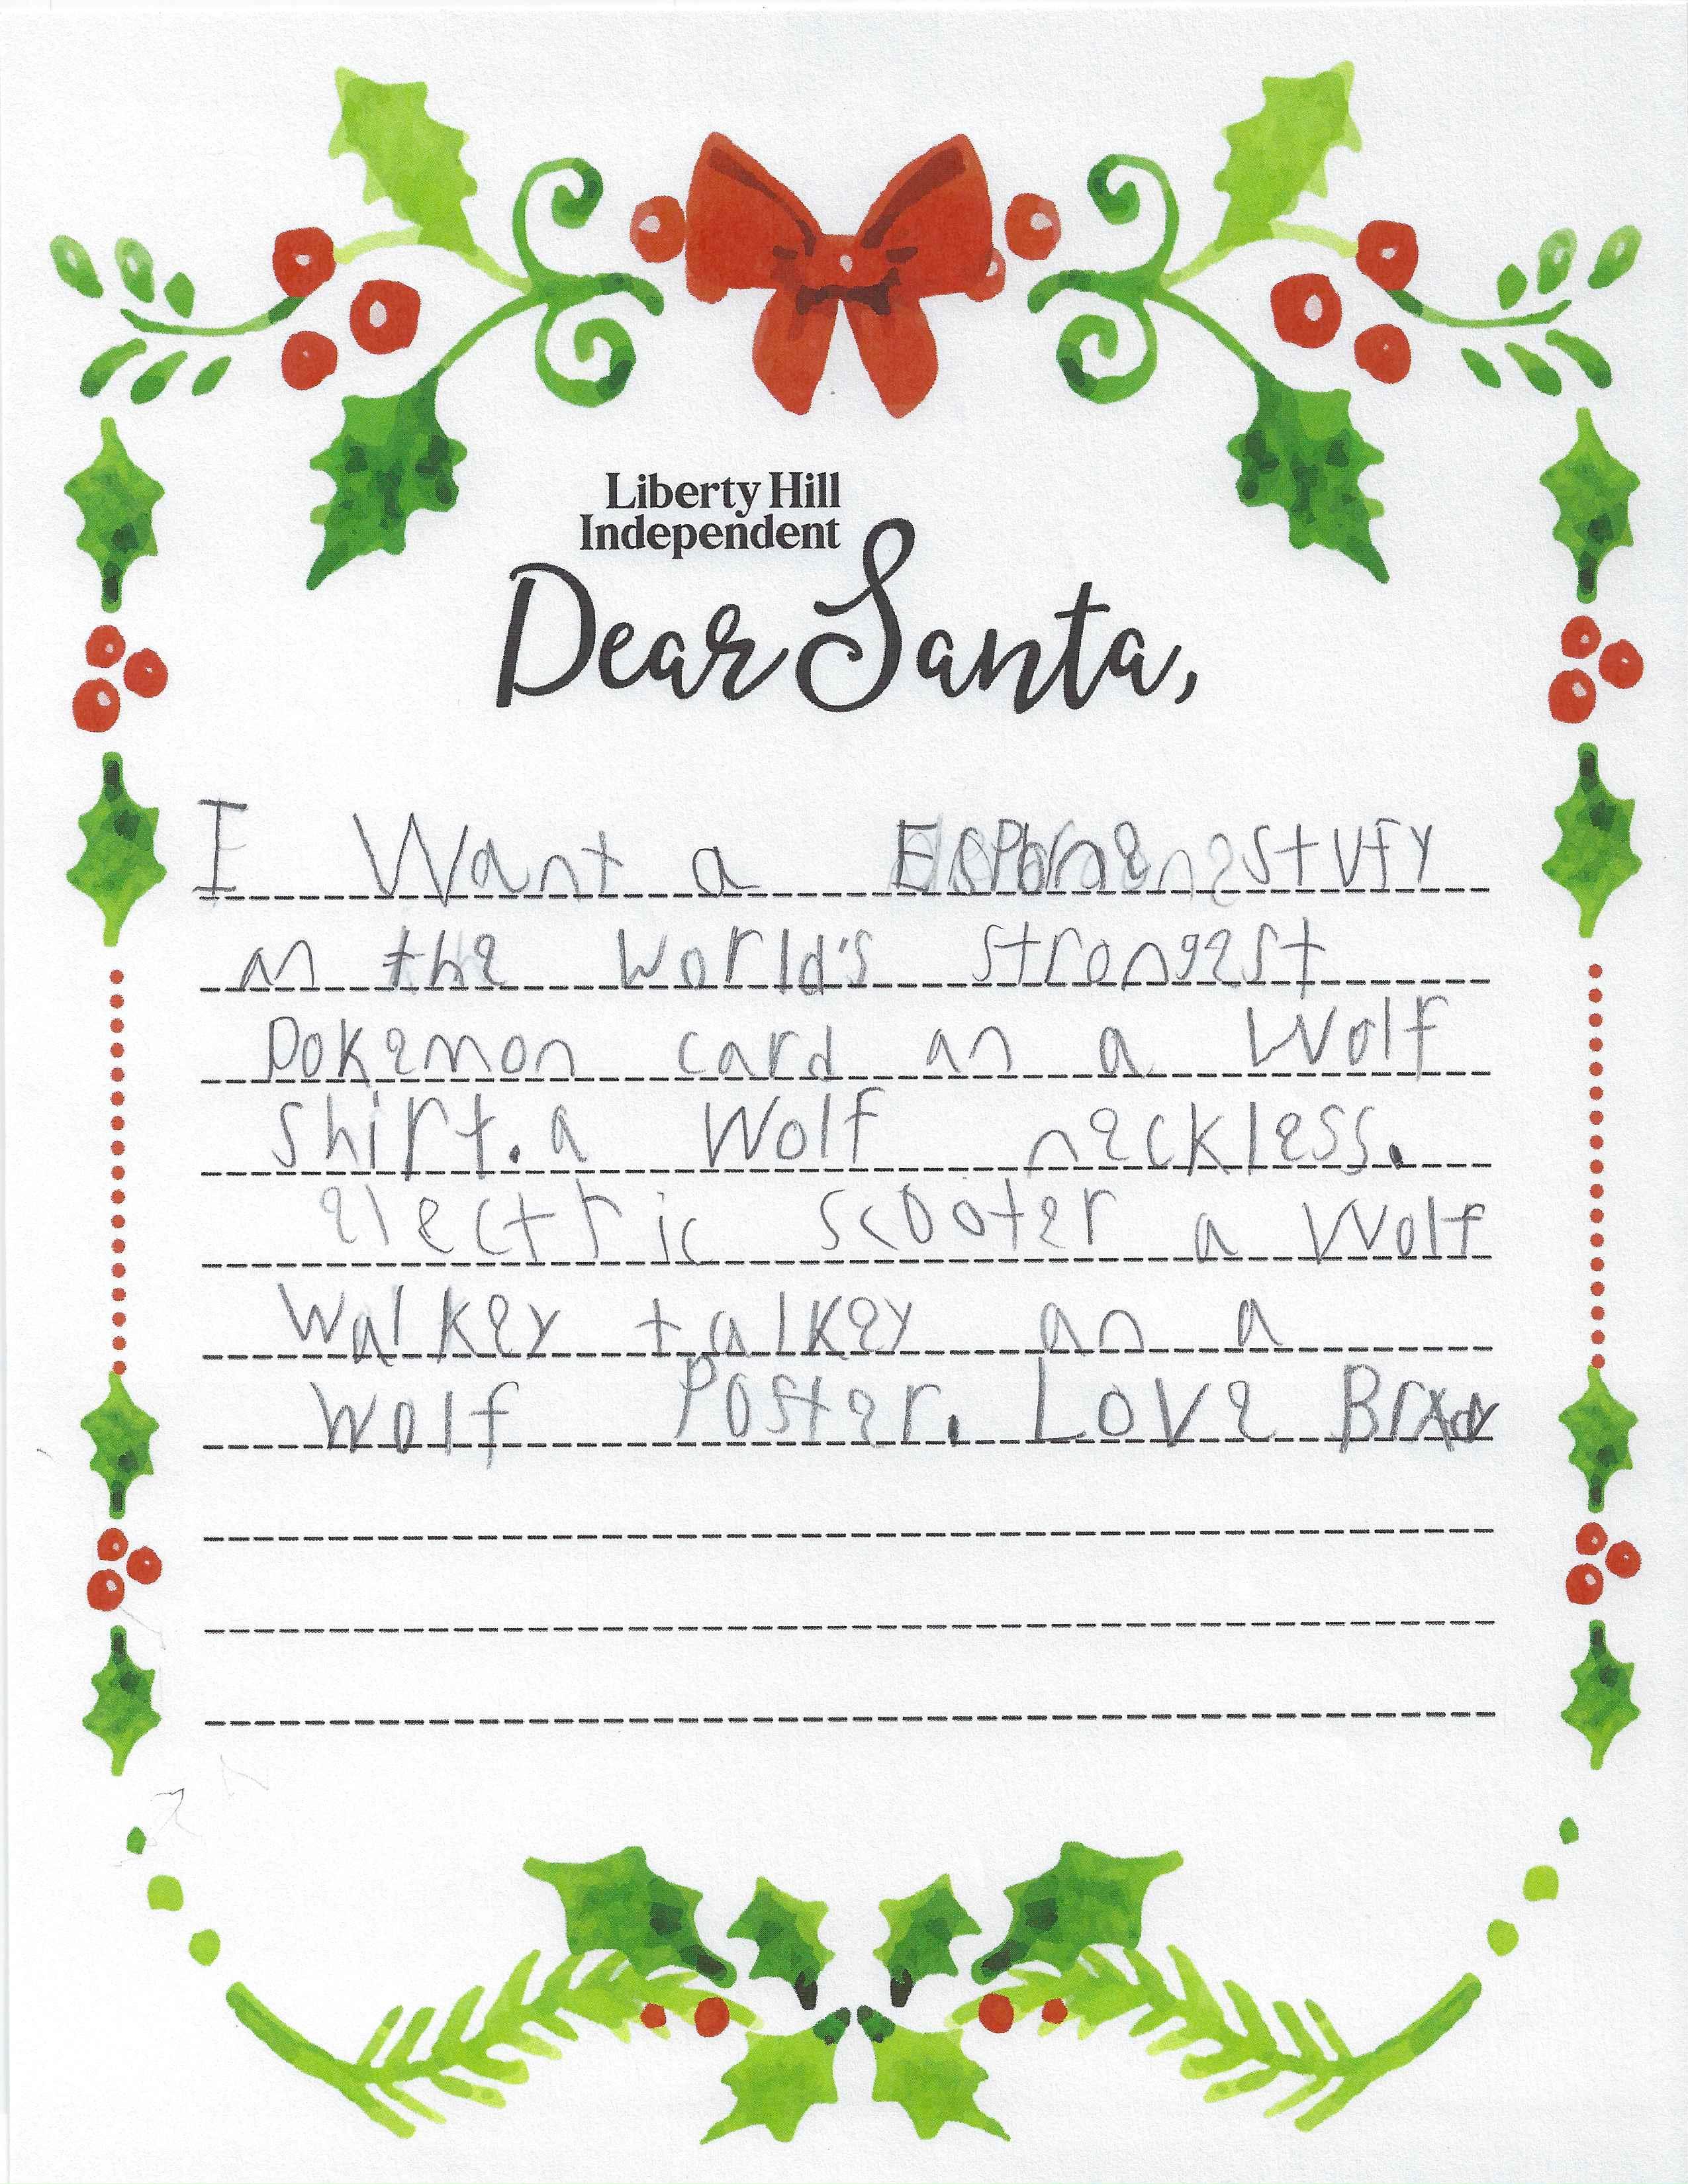 Liberty Hill
Independent
Dear Santa,
I Want a stufy
an the world's strongest
Pokemon card an a Wolf
shirt. a Wolf neckless.
electric scooter a Wolf
walkey talkey an a
wolf Poster. Love